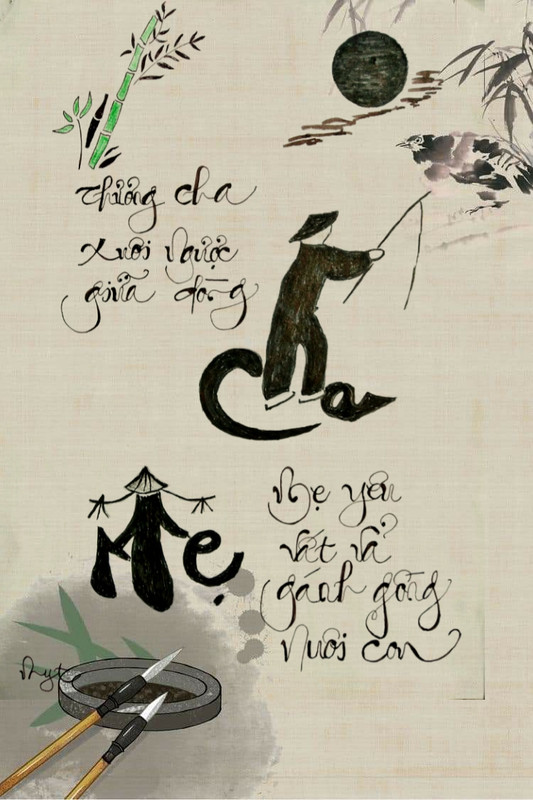 Thương cha
Xuôi Ngược
giữa dòng
Cha
Mẹ
Mẹ yêu
vất vả
gánh gồng
Nuôi con